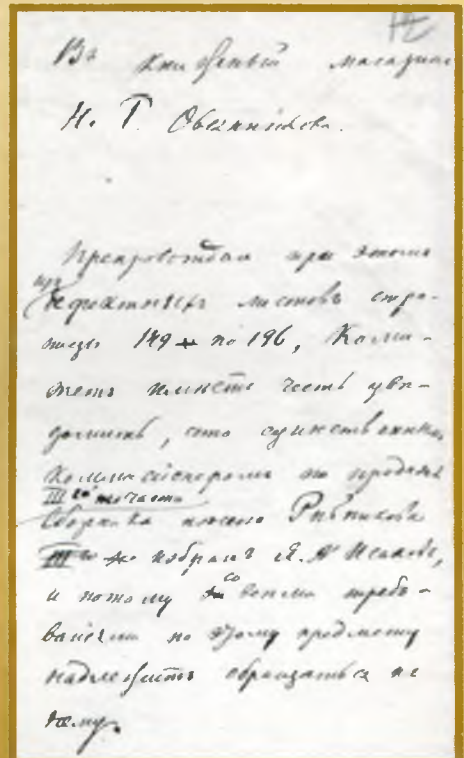 Въ книжный магазинъ
Н. Г. Овсянникова.
Препровождая при этомъ
изъ дефектныхъ листовъ стра-
ницы 149 по 196, Коми-
тетъ имѣетъ честь уве-
домить, что единственнымъ
коммисіонеромъ по продажѣ
III го части
Сборника пѣсенъ Рыбникова
избранъ Я. А. Исаковъ,
и потому со всеми требо-
ваніями по этому предмету
надлежитъ обращаться къ
нему.